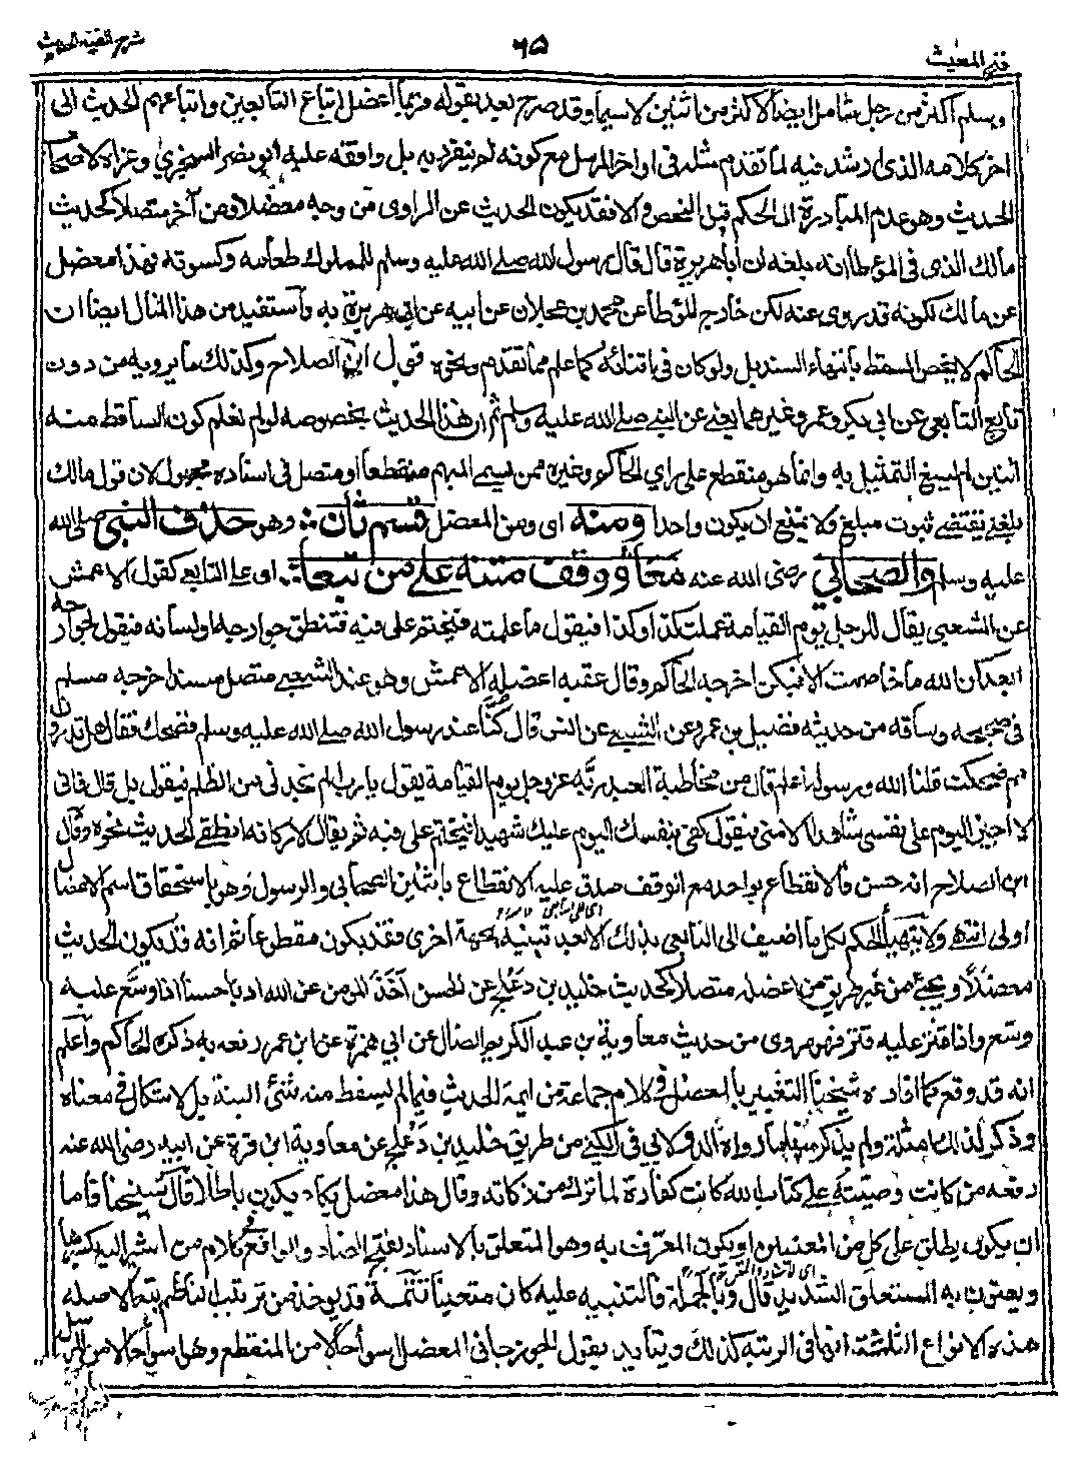 فتح المغيث
٦٥
شرح الفية الحديث
وسلم أكثر من رجل شامل ايضا لاكثر من اثنين لاسيما وقد صرح بعد بقوله فربما أعضل اتباع التابعين واتباعهم الحديث الى
اخر كلامه الذي ارشد فيه لما تقدم مثله في اواخر المرسل مع كونه لم ينفرد به بل وافقه عليه ابو نصر السجزي وعزاه لاصحاب
الحديث وهو عدم المبادرة الى الحكم قبل الفحص والا فقد يكون الحديث عن الراوي من وجه معضلا ومن آخر متصلا كحديث
مالك الذي في المؤطا انه بلغه ان أبا هريرة قال قال رسول الله صلى الله عليه وسلم للمملوك طعامه وكسوته فهذا معضل
عن مالك لكونه قد روى عنه لكن خارج المؤطا عن محمد بن عجلان عن ابيه عن ابي هريرة به وأستفيد من هذا المثال ايضا ان
الحاكم لا يخص السقط بانتهاء السند بل ولو كان في اثنائه كما علم مما تقدم ونحوه قول ابن الصلاح وكذلك ما يرويه من دون
تابع التابعي عن ابي بكر وعمر وغيرهما يعني عن النبي صلى الله عليه وسلم ثم ان هذا الحديث بخصوصه لو لم نعلم كون الساقط منه
اثنين لم يسغ التمثيل به وانما هو منقطع على راي الحاكم وغيره ممن يسمي المبهم منقطعا او متصل في اسناده مجهول لان قول مالك
بلغني يقتضي ثبوت مبلغ ولا يمتنع ان يكون واحدا ومنه اى ومن المعضل قسم ثان وهو حذف النبي صلى الله
عليه وسلم والصحابي رضى الله عنه معا ووقف متنه على من تبعا اى على التابعي كقول الاعمش
عن الشعبي يقال للرجل يوم القيامة عملت كذا وكذا فيقول ما علمته فيختم على فيه فتنطق جوارحه او لسانه فيقول لجوارحه
ابعدكن الله ما خاصمت الا فيكن اخرجه الحاكم وقال عقبه اعضله الاعمش وهو عند الشعبي متصل مسند اخرجه مسلم
في صحيحه وساقه من حديث فضيل بن عمرو عن الشعبي عن انس قال كنا عند رسول الله صلى الله عليه وسلم فضحك فقال هل تدرون
مم ضحكت قلنا الله ورسوله اعلم قال من مخاطبة العبد ربه عز وجل يوم القيامة يقول يا رب الم تجرني من الظلم فيقول بلى قال فاني
لا اجيز اليوم على نفسي شاهدا الا مني فيقول كفى بنفسك اليوم عليك شهيدا فيختم على فيه ثم يقال لاركانه انطقي الحديث نحوه وقال
ابن الصلاح انه حسن فالانقطاع بواحد مع الوقف صدق عليه الانقطاع باثنين الصحابي والرسول وهو باستحقاق اسم الاعضال
اولى انتهى ولا يتهيأ الحكم لكل ما اضيف الى التابعي بذلك الا بعد تبينه بجهة اخرى فقد يكون مقطوعا ثم انه قد يكون الحديث
معضلا ويجيء من غير طريق من اعضله متصلا كحديث خليد بن دعلج عن الحسن أخذ المومن عن الله ادبا حسنا اذا وسع عليه
وسع واذا قتر عليه قتر فهو مروى من حديث معاوية بن عبد الكريم الضال عن ابي حمزة عن ابن عمر رفعه به ذكره الحاكم وأعلم
انه قد وقع كما افاده شيخنا التعبير بالمعضل في كلام جماعة من ايمة الحديث فيما لم يسقط منه شئ البتة بل لاشكال في معناه
وذكر لذلك امثلة ولم يذكر منها ما رواه الدولابي في الكنى من طريق خليد بن دعلج عن معاوية ابن قرة عن ابيه رضى الله عنه
رفعه من كانت وصيته على كتاب الله كانت كفارة لما ترك من ذكاته وقال هذا معضل يكاد يكون باطلا قال شيخنا فاما
ان يكون يطلق على كل من المعنيين او يكون المعرف به وهو المتعلق بالاسناد بفتح الضاد والواقع في كلام من اشير اليه بكسرها
ويعنون به المستغلق الشديد قال وبالجملة فالتنبيه عليه كان متعينا تتمة قد يوخذ من ترتيب الناظم تبعا لاصله
هذه الانواع الثلثة انها في الرتبة كذلك ويتأيد بقول الجوزجاني المعضل اسوأ حالا من المنقطع وهو اسوأ حالا من المرسل